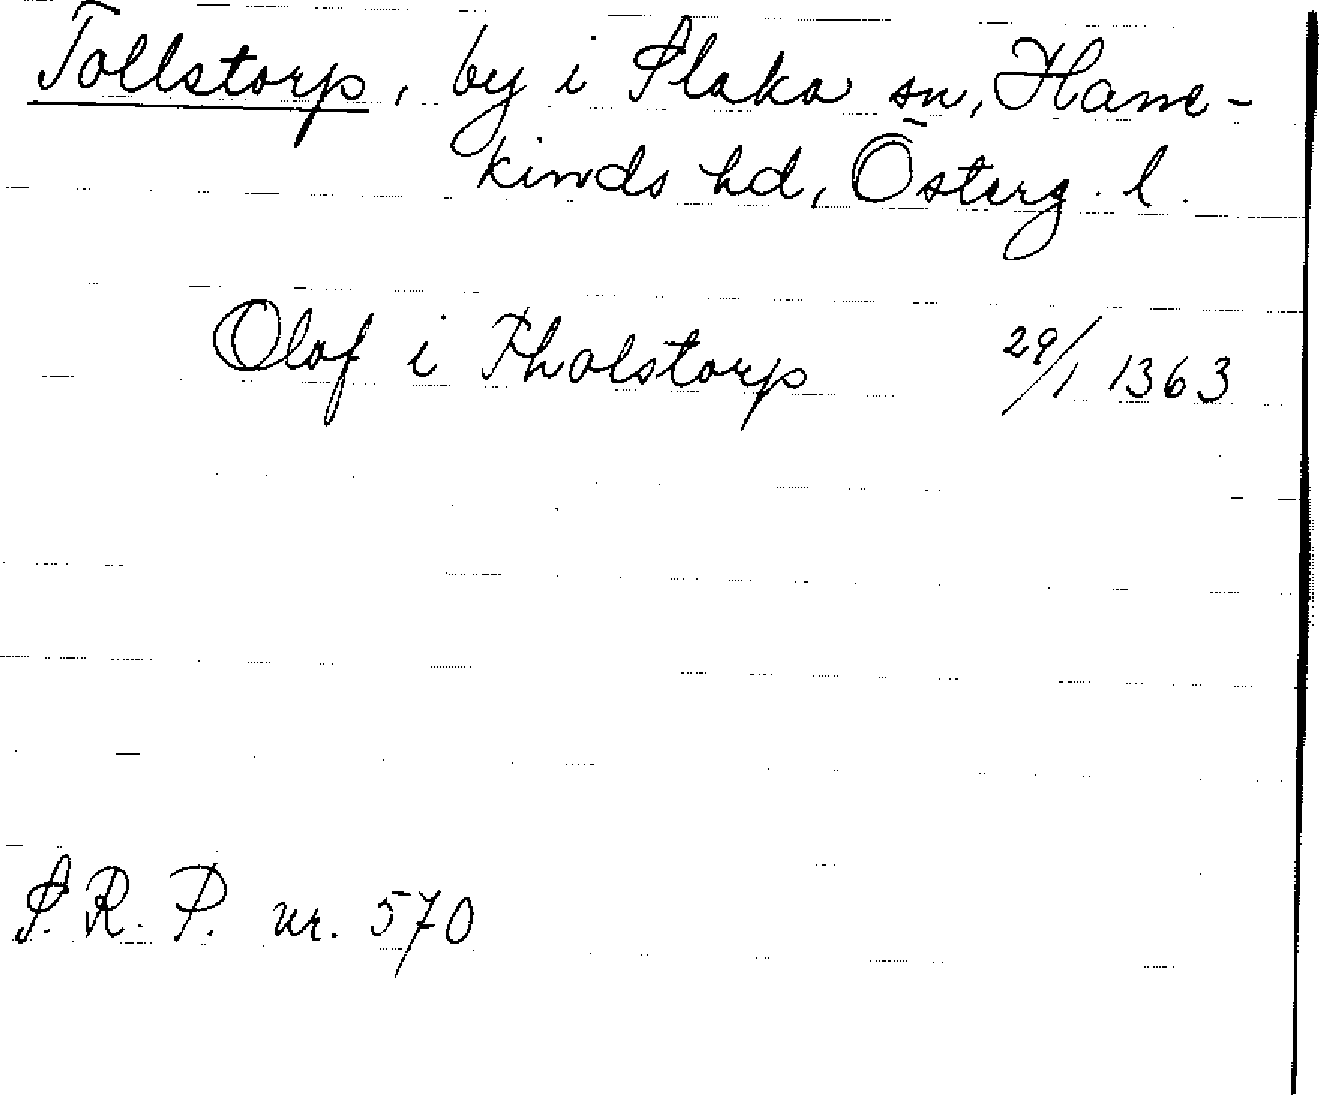 Tollstorp, by i Slaka sn, Hane-
kinds hd, Österg. l.
Olof i Tholstorp 29/1 1363
S. R. P. nr. 570